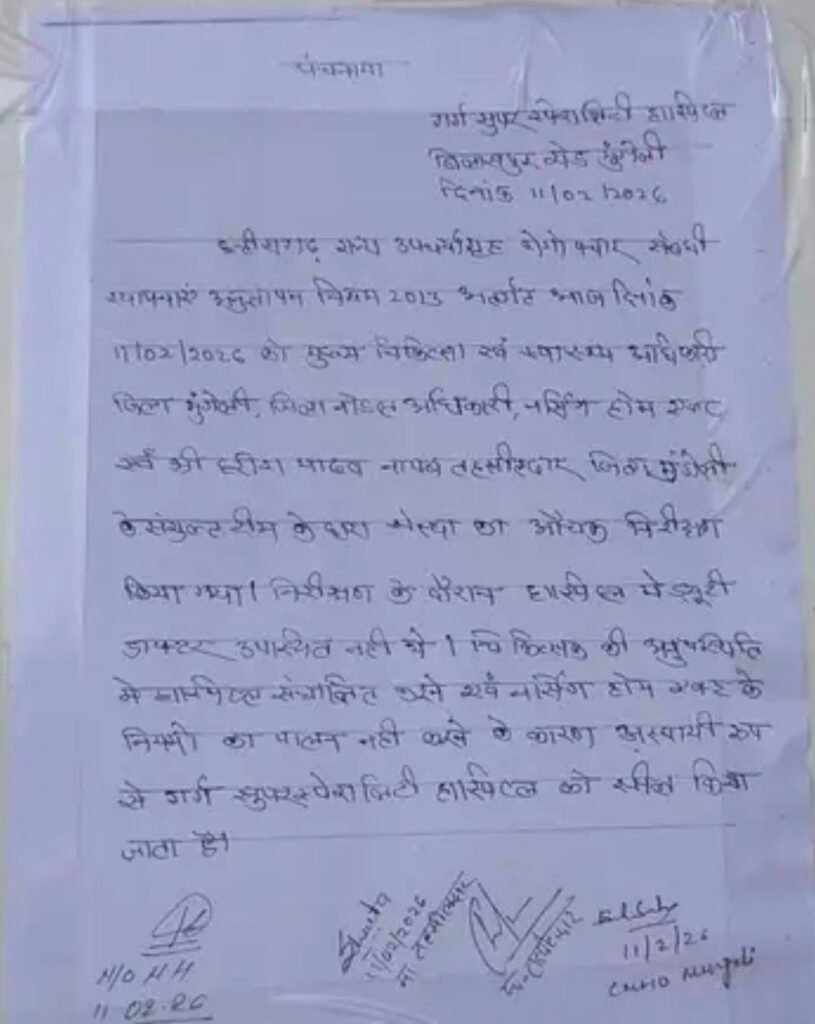 पंचनामा
गर्ग सुपर स्पेशलिटी हास्पिटल
बिलासपुर रोड मुंगेली
दिनांक 11/02/2026
छत्तीसगढ़ राज्य उपचर्यागृह रोगोपचार संबंधी
स्थापनाएं अनुज्ञापन नियम 2013 अंतर्गत आज दिनांक
11/02/2026 को मुख्य चिकित्सा एवं स्वास्थ्य अधिकारी
जिला मुंगेली, जिला नोडल अधिकारी, नर्सिंग होम एक्ट,
एवं श्री हरीश यादव नायब तहसीलदार जिला मुंगेली
के संयुक्त टीम के द्वारा संस्था का औचक निरीक्षण
किया गया। निरीक्षण के दौरान हास्पिटल मे ड्यूटी
डाक्टर उपास्थित नही थे। चिकित्सक की अनुपस्थिति
मे हास्पिटल संचालित करने एवं नर्सिंग होम एक्ट के
नियमो का पालन नही करने के कारण अस्थायी रूप
से गर्ग सुपरस्पेशलिटी हास्पिटल को सील किया
जाता है।
N/O NH
11.02.26
11/02/2026
ना. तहसीलदार
11/2/26
CMHO Mungeli